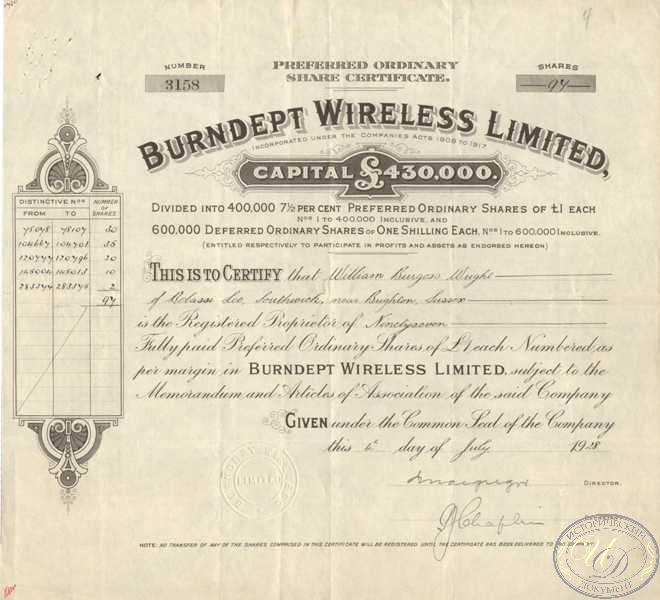 4
NUMBER
3158
PREFERRED ORDINARY
SHARE CERTIFICATE.
SHARES
97
BURNDEPT WIRELESS LIMITED,
INCORPORATED UNDER THE COMPANIES ACTS 1908 TO 1917
CAPITAL £430,000.
DIVIDED INTO 400,000 7½ PER CENT PREFERRED ORDINARY SHARES OF £1 EACH
Nos 1 TO 400000 INCLUSIVE, AND
600,000 DEFERRED ORDINARY SHARES OF ONE SHILLING EACH, Nos 1 TO 600000 INCLUSIVE.
(ENTITLED RESPECTIVELY TO PARTICIPATE IN PROFITS AND ASSETS AS ENDORSED HEREON)
DISTINCTIVE Nos NUMBER OF SHARES
FROM TO
30
20
10
2
97
THIS IS TO CERTIFY that William Burgess Wright
of Lee, Southwick, near Brighton, Sussex
is the Registered Proprietor of Ninetyseven
Fully paid Preferred Ordinary Shares of £1 each Numbered, as
per margin in BURNDEPT WIRELESS LIMITED, subject to the
Memorandum and Articles of Association of the said Company
GIVEN under the Common Seal of the Company
this 6th day of July 1928
DIRECTOR.
LIMITED
Chaplin
NOTE: NO TRANSFER OF ANY OF THE SHARES COMPRISED IN THIS CERTIFICATE WILL BE REGISTERED UNTIL THE CERTIFICATE HAS BEEN DELIVERED TO THE
ИСТОРИЧЕСКИЙ
ИД
ДОКУМЕНТ